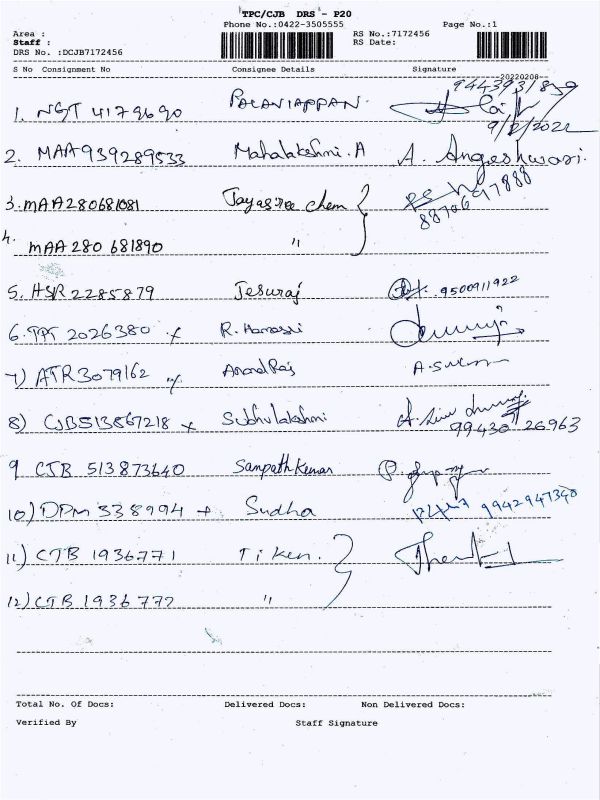 TPC/CJB DRS - P20
Phone No.:0422-3505555 Page No.:1
Area : RS No.:7172456
Staff : RS Date:
DRS No. :DCJB7172456
S No Consignment No Consignee Details Signature
20220208
9443931839
1. NGT 4179690 PALANIAPPAN.
9/2/2022
2. MAA939289533 Mahalakshmi.A A. Angeshwari.
3. MAA280681081 Jayasree chem
8870697888
4. MAA 280 681890 "
5. HSR 2285879 Jesuraj 9500911922
6. TPT 2026380 x R.
7) ATR 3079162 AnandRaj A.
8) CJB513867218 x Subhulakshmi
99430 26963
9. CJB 513873640 Sampathkumar
10) DPM 338994 + Sudha 9942947340
11) CTB 1936771 Ti ken.
12) CTB 1936772 "
Total No. Of Docs: Delivered Docs: Non Delivered Docs:
Verified By Staff Signature